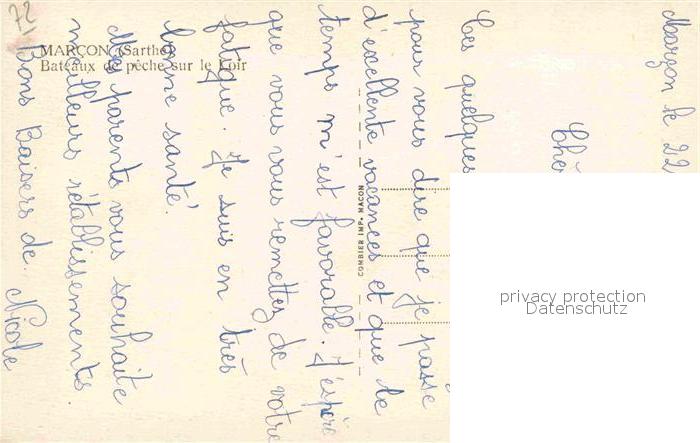 72
MARÇON (Sarthe)
Bateaux de pêche sur le Loir
COMBIER IMP. MACON
Marçon le 22
Ces quelques
pour vous dire que je passe
d'excellente vacances et que le
temps m'est favorable. J'espère
que vous vous remettez de votre
fatigue. Je suis en très
bonne santé.
Mes parents vous souhaite
meilleurs rétablissements.
Bons Baisers de. Nicole
privacy protection
Datenschutz